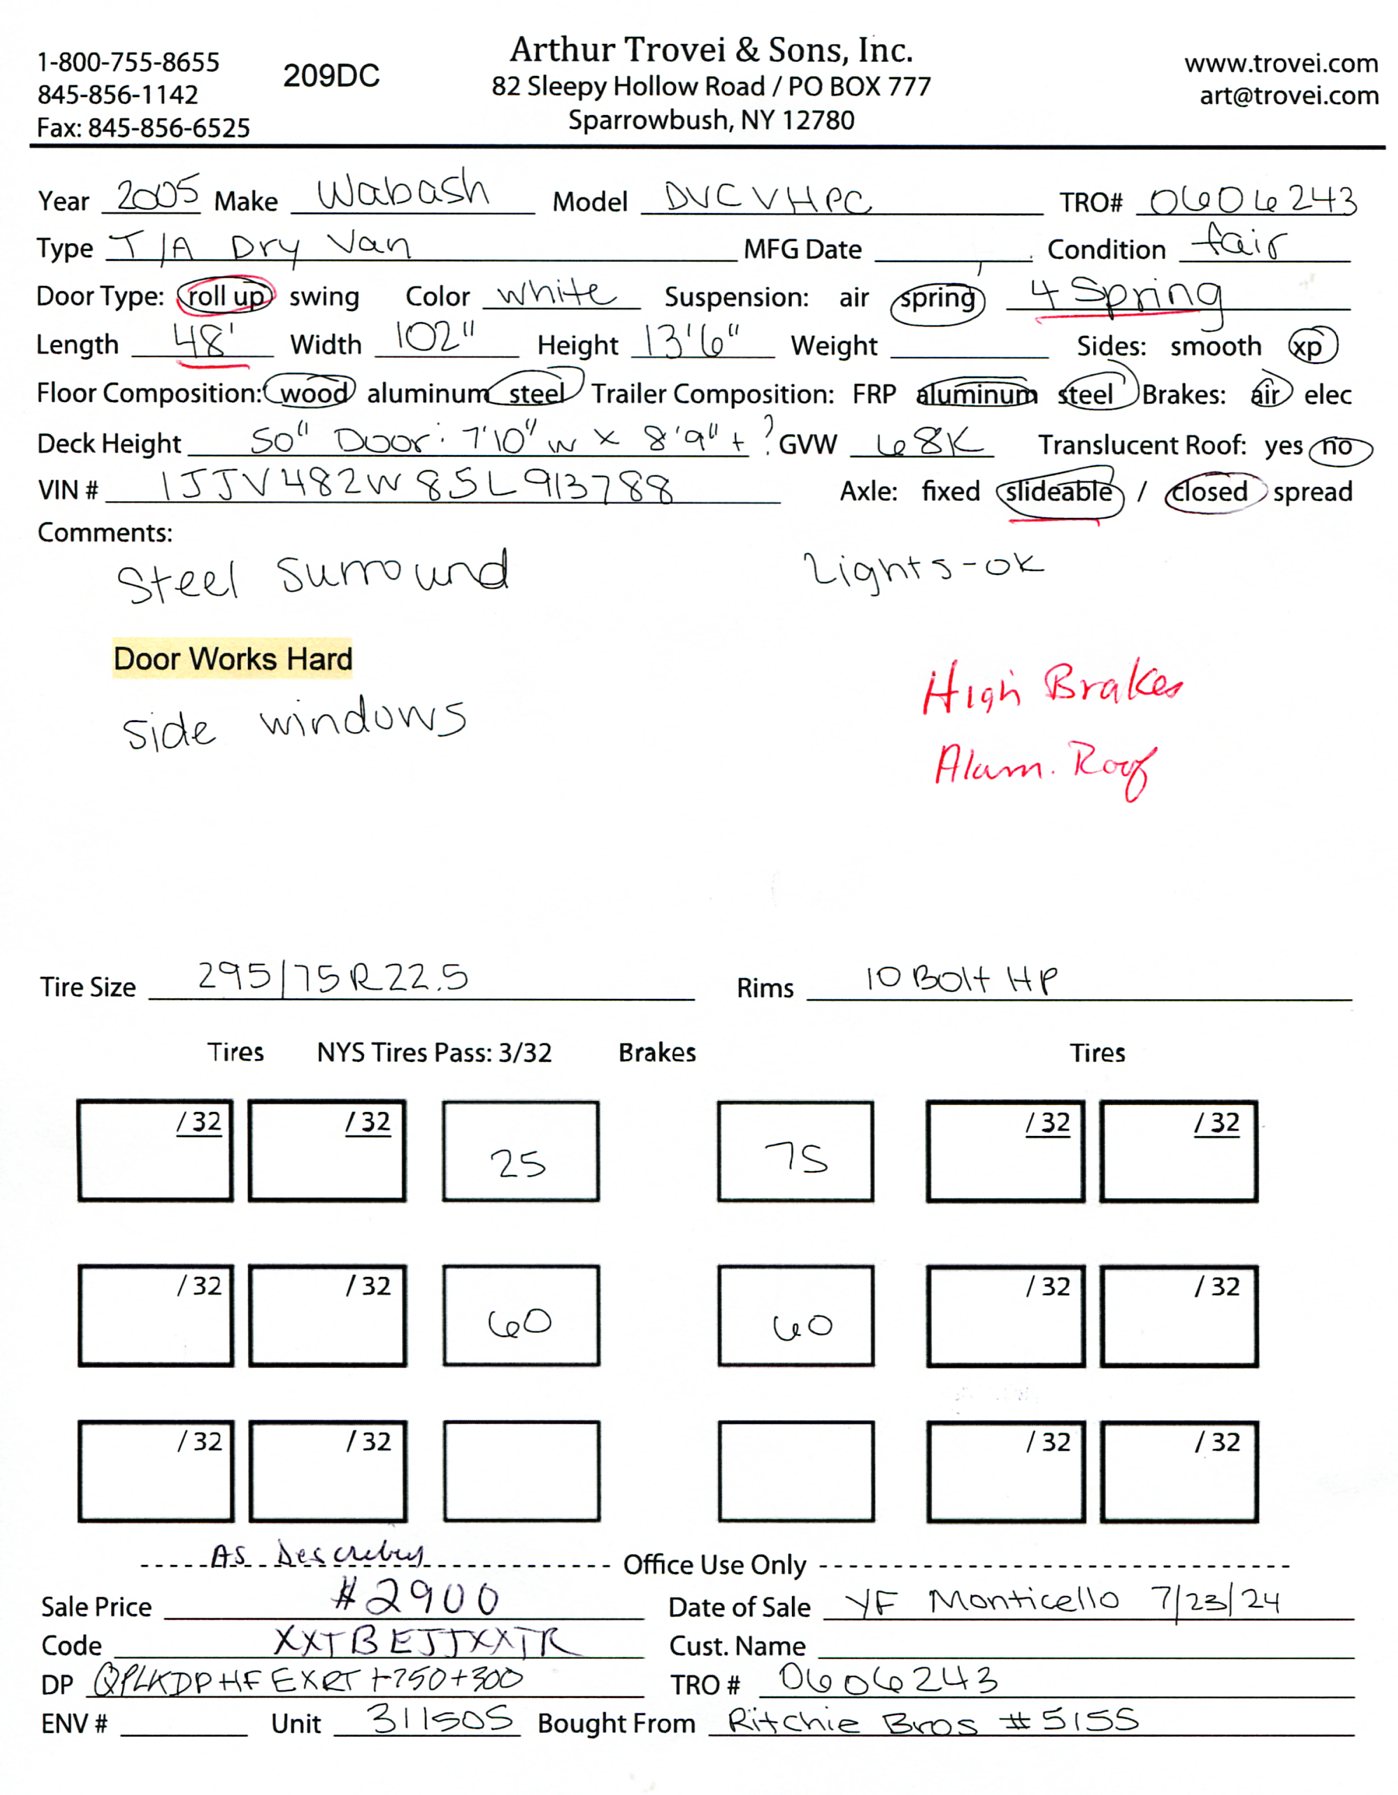 Arthur Trovei & Sons, Inc.
1-800-755-8655 209DC 82 Sleepy Hollow Road / PO BOX 777 www.trovei.com
845-856-1142 art@trovei.com
Fax: 845-856-6525 Sparrowbush, NY 12780
Year 2005 Make Wabash Model DVCVHPC TRO# 0606243
Type T/A Dry Van MFG Date Condition fair
Door Type: roll up swing Color white Suspension: air spring 4 Spring
Length 48' Width 102" Height 13'6" Weight Sides: smooth xp
Floor Composition: wood aluminum steel Trailer Composition: FRP aluminum steel Brakes: air elec
Deck Height 50" Door: 7'10" w x 8'9" + ? GVW 68K Translucent Roof: yes no
VIN # 1JJV482W85L913788 Axle: fixed slideable / closed spread
Comments:
Steel surround Lights-ok
Door Works Hard
High Brakes
side windows
Alum. Roof
Tire Size 295/75R22.5 Rims 10 Bolt HP
Tires NYS Tires Pass: 3/32 Brakes Tires
/32 /32 25 75 /32 /32
/32 /32 60 60 /32 /32
/32 /32 /32 /32
As Office Use Only
Sale Price $2900 Date of Sale YF Monticello 7/23/24
Code XXTBEJJXXTR Cust. Name
DP +750+300 TRO # 0606243
ENV # Unit 311505 Bought From Ritchie Bros #5155